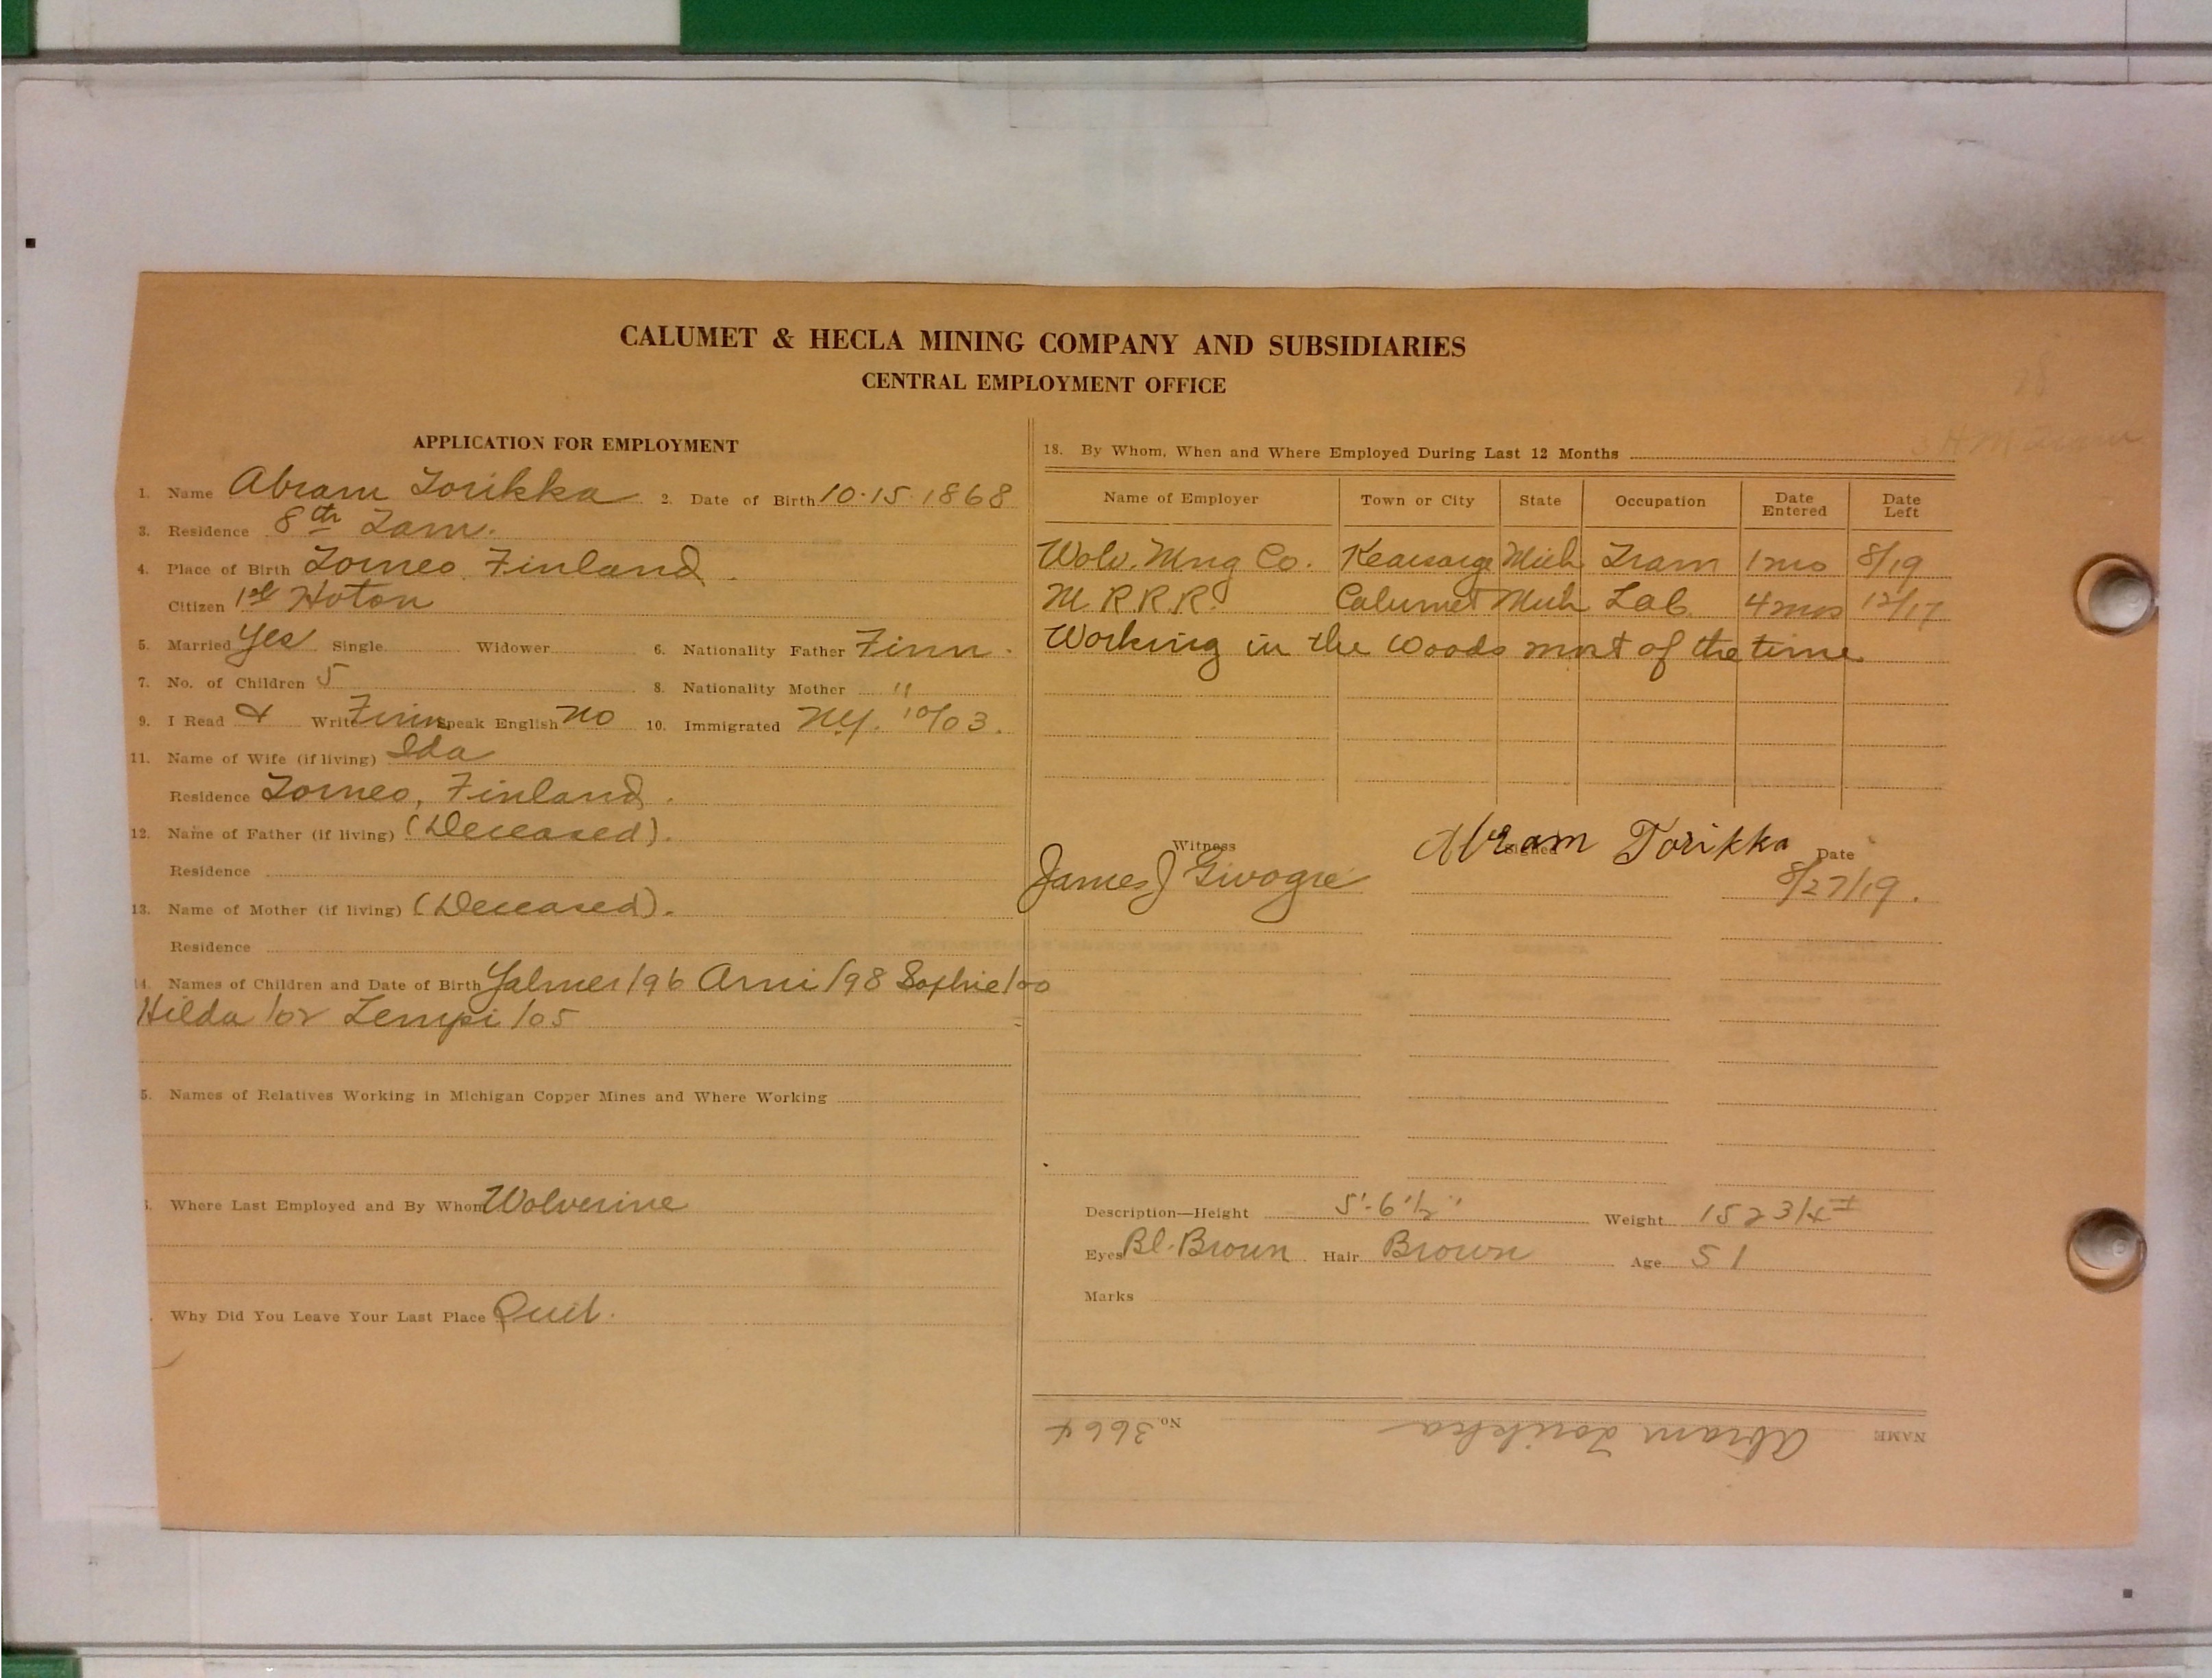 CALUMET & HECLA MINING COMPANY AND SUBSIDIARIES
CENTRAL EMPLOYMENT OFFICE
APPLICATION FOR EMPLOYMENT
1. Name Abram Torikka 2. Date of Birth 10-15-1868
3. Residence 8th Tam.
4. Place of Birth Torneo, Finland.
Citizen 1st Hoton
5. Married Yes Single Widower 6. Nationality Father Finn.
7. No. of Children 5 8. Nationality Mother "
9. I Read & Write Finn Speak English No 10. Immigrated NY. 10/03.
11. Name of Wife (if living) Ida
Residence Torneo, Finland.
12. Name of Father (if living) (Deceased).
Residence
13. Name of Mother (if living) (Deceased).
Residence
14. Names of Children and Date of Birth Yalmer/96 Arni/98 Sophie/00
Hilda/02 Tempi/05
5. Names of Relatives Working in Michigan Copper Mines and Where Working
Where Last Employed and By Whom Wolverine
Why Did You Leave Your Last Place Quit.
18. By Whom, When and Where Employed During Last 12 Months
Name of Employer Town or City State Occupation Date Entered Date Left
Wolv. Mng Co. Kearsarge Mich Tram 1 mo 8/19
M. R.R.R. Calumet Mich Lab. 4 mos 12/17
Working in the Woods most of the time
Witness Signed Date
James J Abram Torikka 8/27/19.
Description—Height 5'-6 1/2" Weight 152 3/4
Eyes Bl. Brown Hair Brown Age 51
Marks
NAME Abram Torikka No. 3664